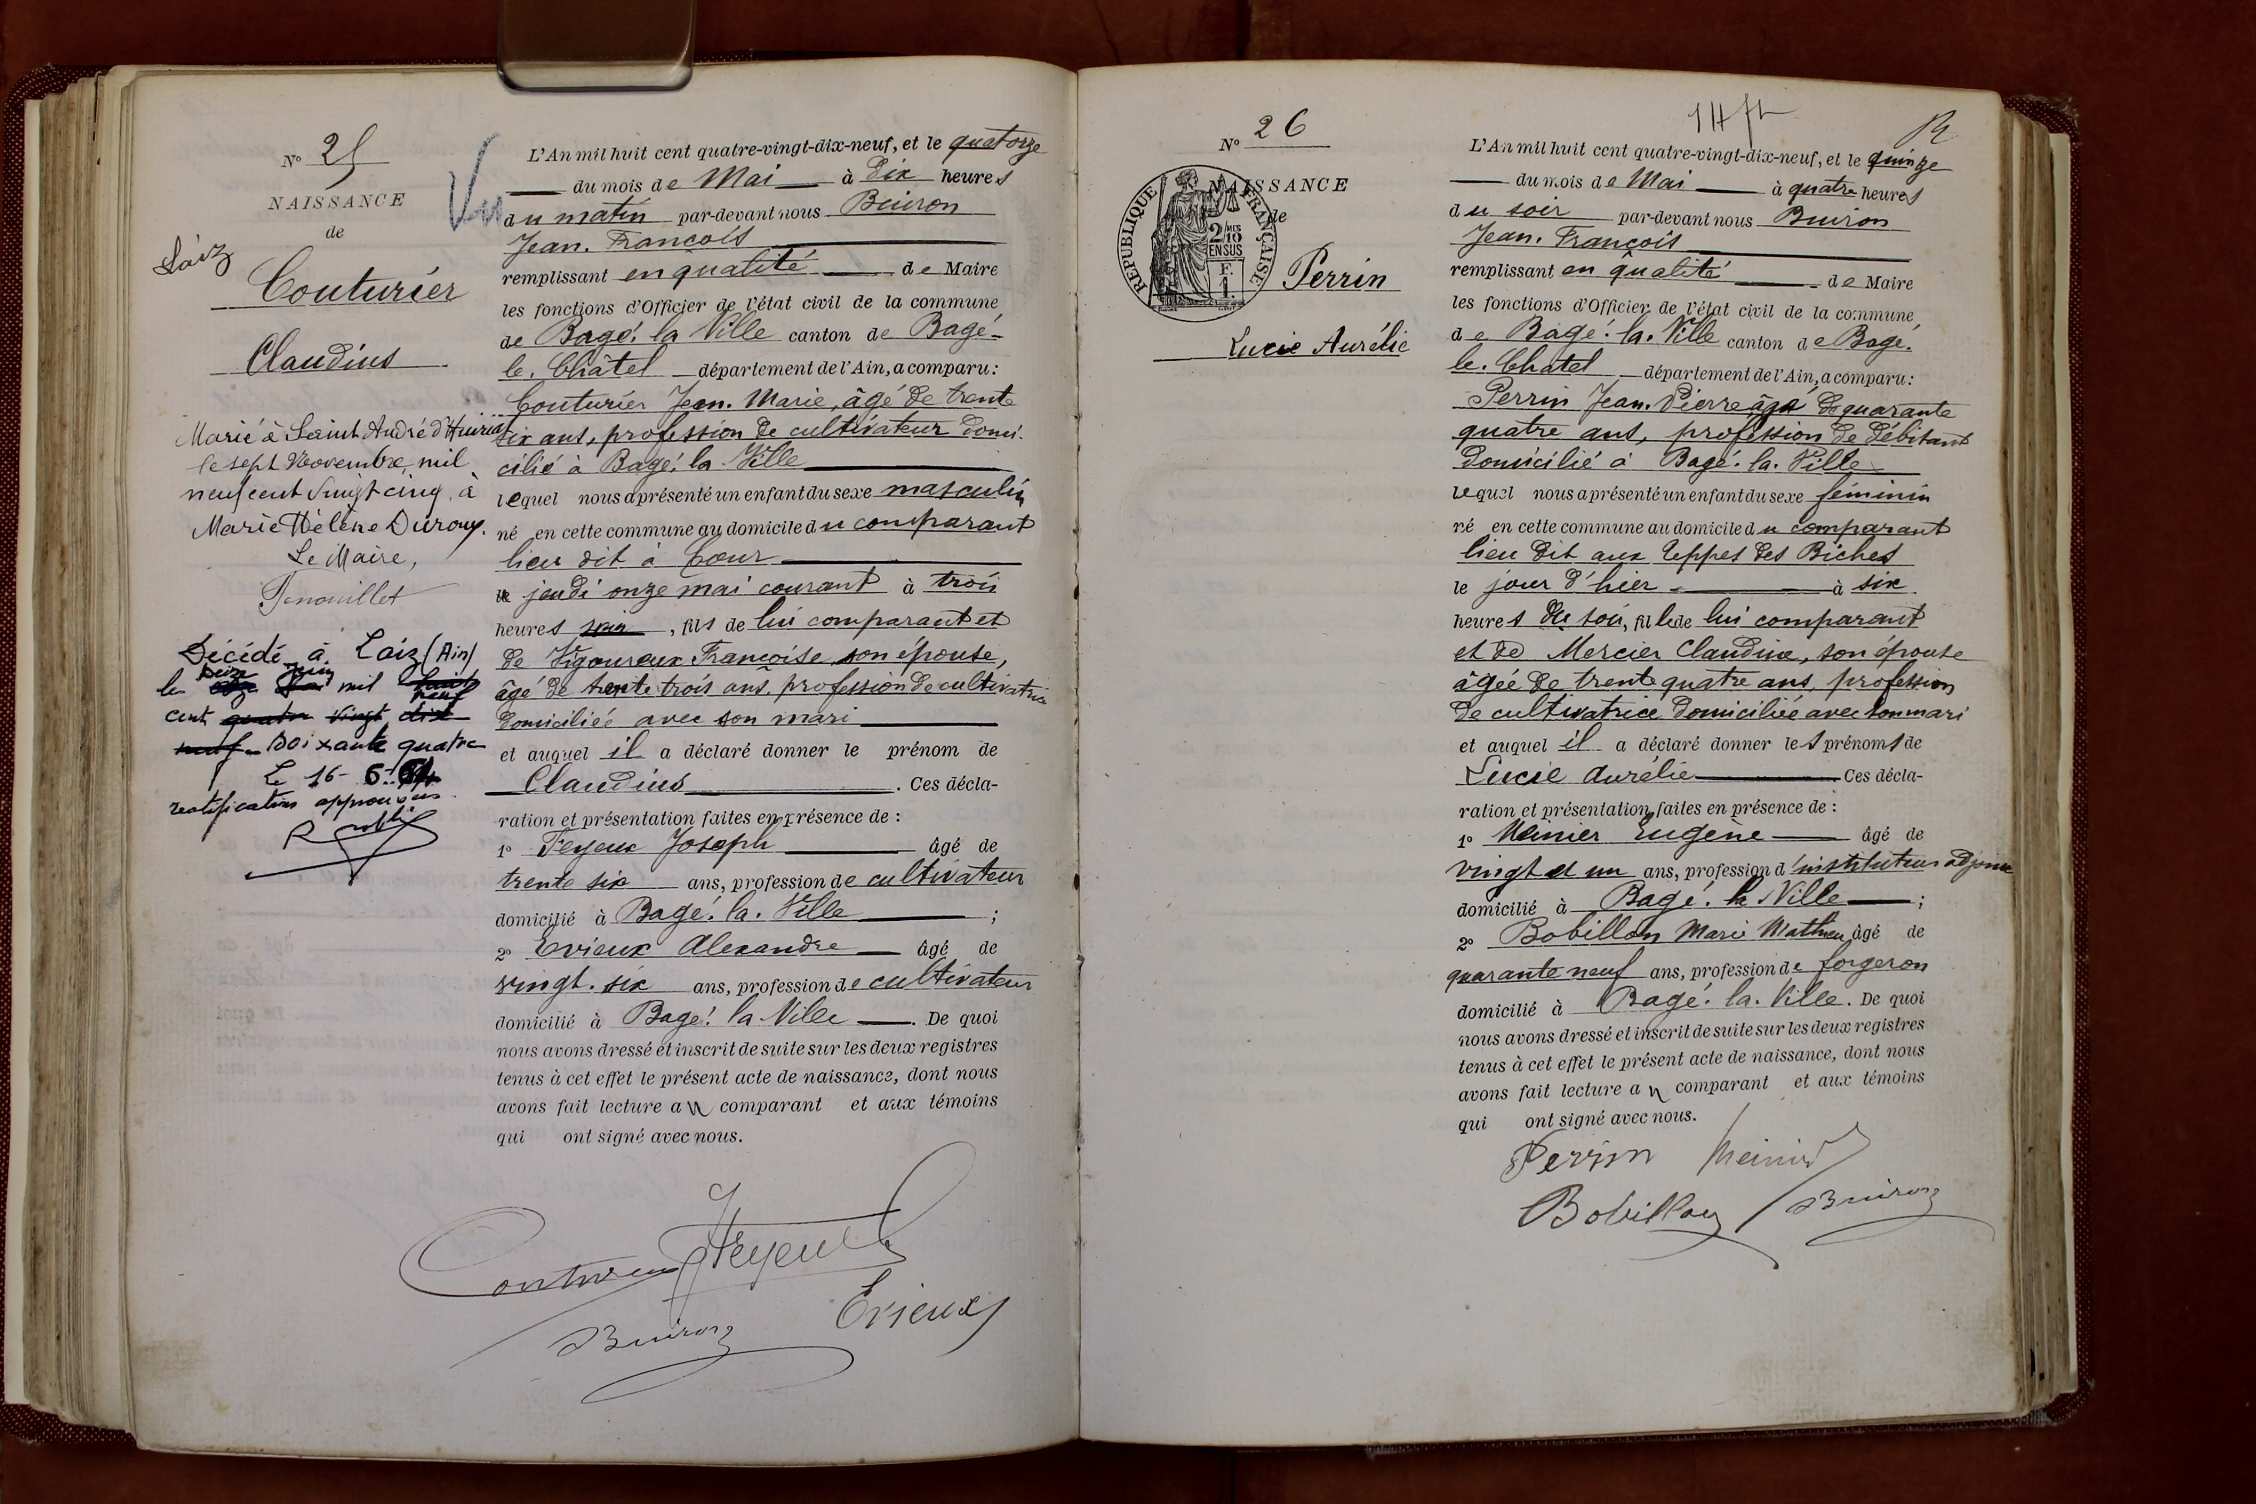 N° 25
NAISSANCE
de
Laiz
Couturier
Claudius
Marié à Saint André d'Huiriat
le sept Novembre, mil
neuf cent vingt cinq, à
Marie Hélène Duroux.
Le Maire,
Décédé à Laiz (Ain)
le onze juin mil huit neuf
cent quatre vingt dix
neuf soixante quatre
Le 16-6-64
rectifications approuvées
Vu
L'An mil huit cent quatre-vingt-dix-neuf, et le quatorze
du mois de Mai à Dix heures
du matin par-devant nous Buiron
Jean. François
remplissant en qualité de Maire
les fonctions d'Officier de l'état civil de la commune
de Bagé. la Ville canton de Bagé-
le. Châtel département de l'Ain, a comparu:
Couturier Jean. Marie, âgé de trente
six ans, profession de cultivateur domi-
cilié à Bagé. la Ville
lequel nous a présenté un enfant du sexe masculin
né en cette commune au domicile du comparant
lieu dit à Cœur
le jeudi onze mai courant à trois
heures soir, fils de lui comparant et
de Vigoureux Françoise son épouse,
âgé de trente trois ans, profession de cultivatrice
domiciliée avec son mari
et auquel il a déclaré donner le prénom de
Claudius. Ces décla-
ration et présentation faites en présence de :
1° Feyeux Joseph âgé de
trente six ans, profession de cultivateur
domicilié à Bagé. la. Ville ;
2° Evieux Alexandre âgé de
vingt. six ans, profession de cultivateur
domicilié à Bagé. la Ville. De quoi
nous avons dressé et inscrit de suite sur les deux registres
tenus à cet effet le présent acte de naissance, dont nous
avons fait lecture au comparant et aux témoins
qui ont signé avec nous.
Couturier Feyeux
Buiron Evieux
N° 26
NAISSANCE
de
RÉPUBLIQUE FRANÇAISE
2/10
EN SUS
F.
1
Perrin
Lucie Aurélie
L'An mil huit cent quatre-vingt-dix-neuf, et le quinze
du mois de Mai à quatre heures
du soir par-devant nous Buiron
Jean. François
remplissant en qualité de Maire
les fonctions d'Officier de l'état civil de la commune
de Bagé. la. Ville canton de Bagé.
le. Chatel département de l'Ain, a comparu:
Perrin Jean. Pierre âgé de quarante
quatre ans, profession de débitant
domicilié à Bagé. la. Ville
lequel nous a présenté un enfant du sexe féminin
né en cette commune au domicile du comparant
lieu dit aux Teppes des Biches
le jour d'hier à six
heures du soir, fille de lui comparant
et de Mercier Claudine, son épouse
âgée de trente quatre ans, profession
de cultivatrice domiciliée avec son mari
et auquel il a déclaré donner les prénoms de
Lucie Aurélie Ces décla-
ration et présentation faites en présence de :
1° Meinier Eugène âgé de
vingt et un ans, profession d'instituteur adjoint
domicilié à Bagé. la Ville ;
2° Bobillon Marie Mathieu âgé de
quarante neuf ans, profession de forgeron
domicilié à Bagé. la. Ville. De quoi
nous avons dressé et inscrit de suite sur les deux registres
tenus à cet effet le présent acte de naissance, dont nous
avons fait lecture au comparant et aux témoins
qui ont signé avec nous.
Perrin Meinier
Bobillon Buiron